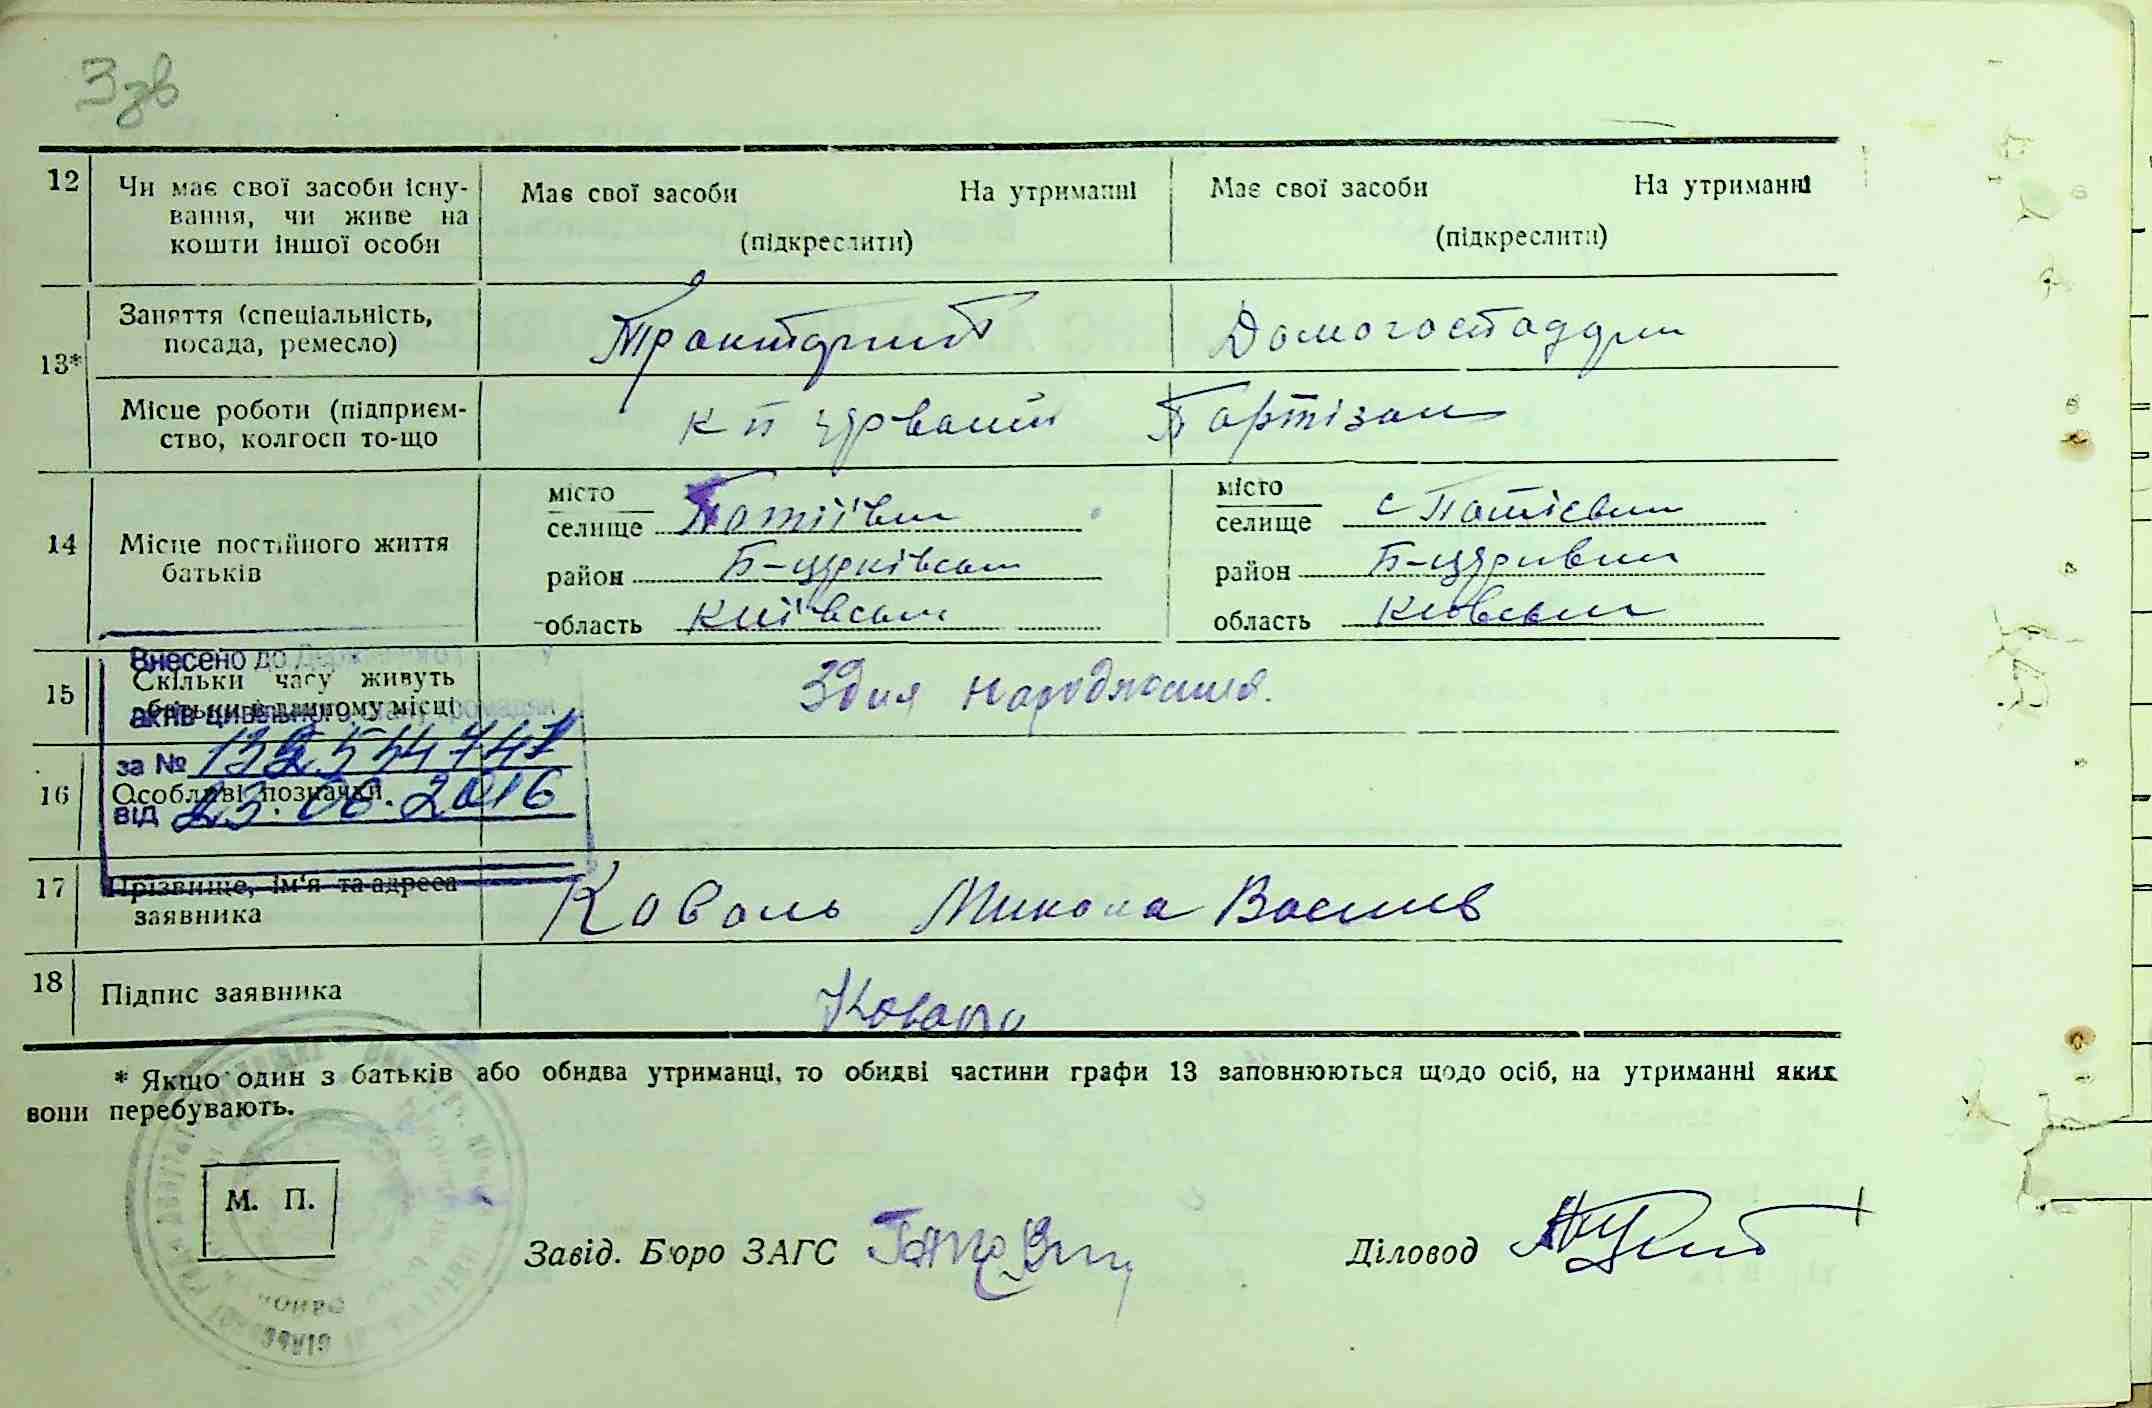 3 зв
12 Чи має свої засоби існу-
вання, чи живе на
кошти іншої особи
Має свої засоби На утриманні
(підкреслити)
Має свої засоби На утриманні
(підкреслити)
13* Заняття (спеціальність,
посада, ремесло)
Тракторист
Домогосподарк
Місце роботи (підприєм-
ство, колгосп то-що
к п червоний Партізан
14 Місце постійного життя
батьків
місто
селище Потіївка
район Б-церківськ
область Київськ
місто
селище с Потієвка
район Б-церквік
область Киевськ
15 Скільки часу живуть
батьки в данному місці
З дня народження.
Внесено до Державного
актів цивільного стану громадян
за № 132544747
від 23.06.2016
16 Особливі позначки
17 Прізвище, ім'я та адреса
заявника
Коваль Микола Василів
18 Підпис заявника
Коваль
* Якщо один з батьків або обидва утриманці, то обидві частини графи 13 заповнюються щодо осіб, на утриманні яких
вони перебувають.
М. П.
Завід. Бюро ЗАГС
Діловод